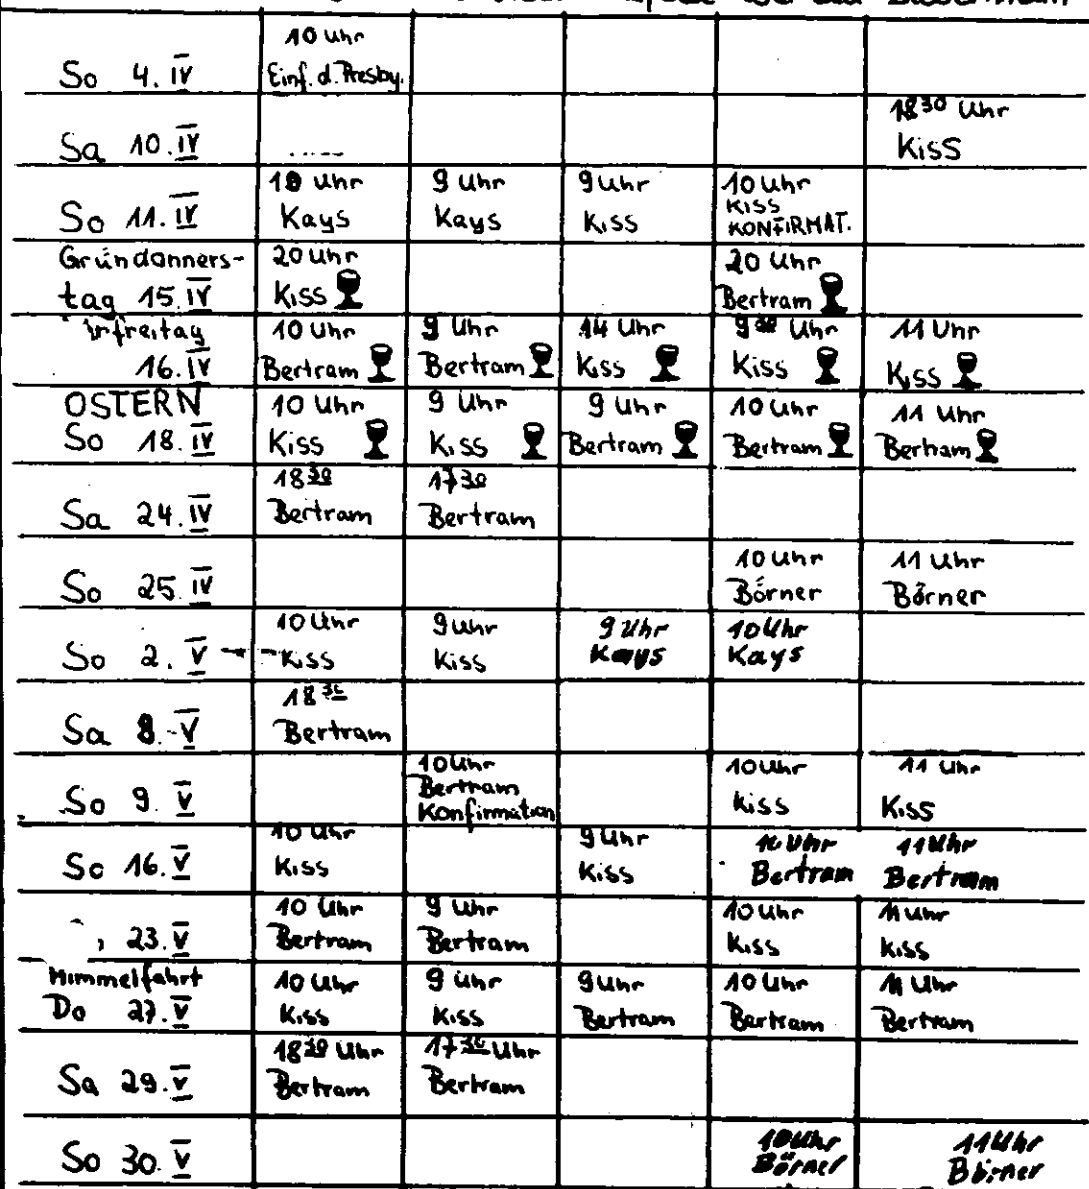 So 4. IV
10 Uhr
Einf. d. Presby.
Sa 10. IV
18 30 Uhr
Kiss
So 11. IV
10 Uhr
Kays
9 Uhr
Kays
9 Uhr
Kiss
10 Uhr
Kiss
KONFIRMAT.
Gründonners-
tag 15. IV
20 Uhr
Kiss
20 Uhr
Bertram
rfreitag
16. IV
10 Uhr
Bertram
9 Uhr
Bertram
14 Uhr
Kiss
9 30 Uhr
Kiss
11 Uhr
Kiss
OSTERN
So 18. IV
10 Uhr
Kiss
9 Uhr
Kiss
9 Uhr
Bertram
10 Uhr
Bertram
11 Uhr
Bertram
Sa 24. IV
18 30
Bertram
17 30
Bertram
So 25. IV
10 Uhr
Börner
11 Uhr
Börner
So 2. V
10 Uhr
Kiss
9 Uhr
Kiss
9 Uhr
Kays
10 Uhr
Kays
Sa 8. V
18 30
Bertram
So 9. V
10 Uhr
Bertram
Konfirmation
10 Uhr
Kiss
11 Uhr
Kiss
So 16. V
10 Uhr
Kiss
9 Uhr
Kiss
10 Uhr
Bertram
11 Uhr
Bertram
23. V
10 Uhr
Bertram
9 Uhr
Bertram
10 Uhr
Kiss
11 Uhr
Kiss
Himmelfahrt
Do 27. V
10 Uhr
Kiss
9 Uhr
Kiss
9 Uhr
Bertram
10 Uhr
Bertram
11 Uhr
Bertram
Sa 29. V
18 30 Uhr
Bertram
17 30 Uhr
Bertram
So 30. V
10 Uhr
Börner
11 Uhr
Börner